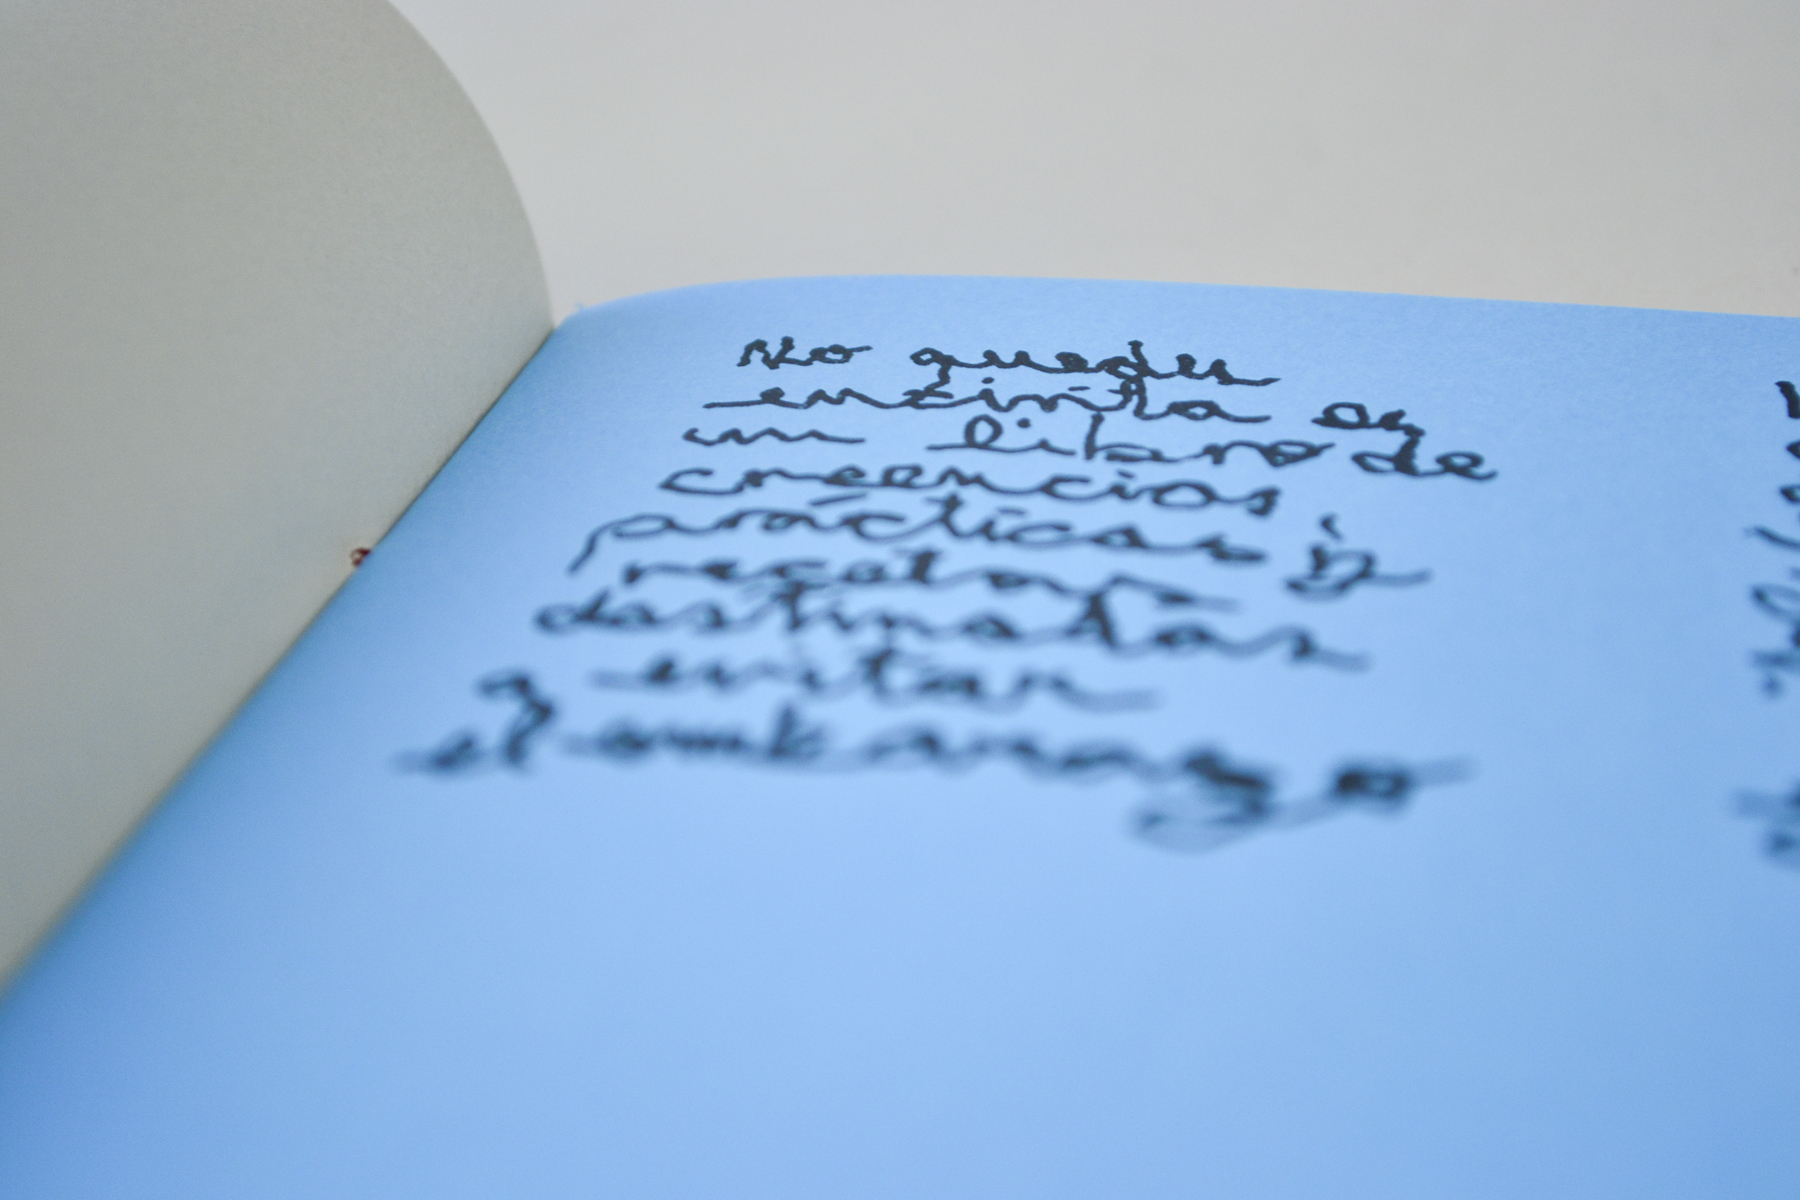 No quedes
encinta es
un libro de
creencias
prácticas y
recetas
destinadas
a evitar
el embarazo